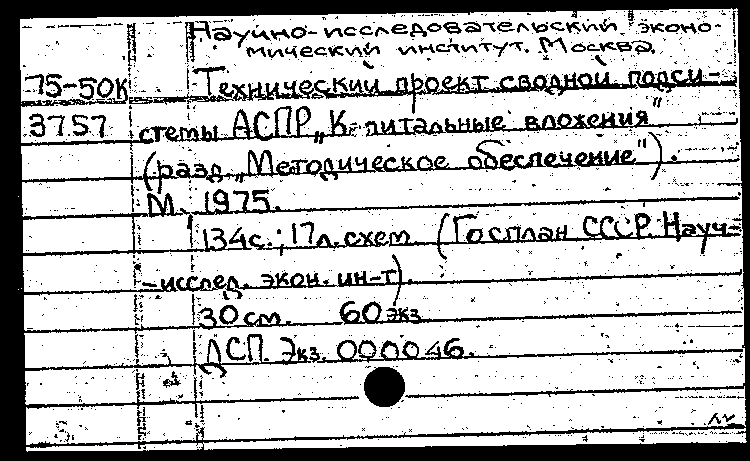 Научно-исследовательский эконо-
мический институт. Москва.
75-50К Технический проект сводной подси-
3757 стемы АСПР „Капитальные вложения"
(разд. „Методическое обеспечение").
М. 1975.
134с.; 17л. схем (Госплан СССР. Науч-
-исслед. экон. ин-т).
30см. 60 экз
ДСП. Экз. 000046.